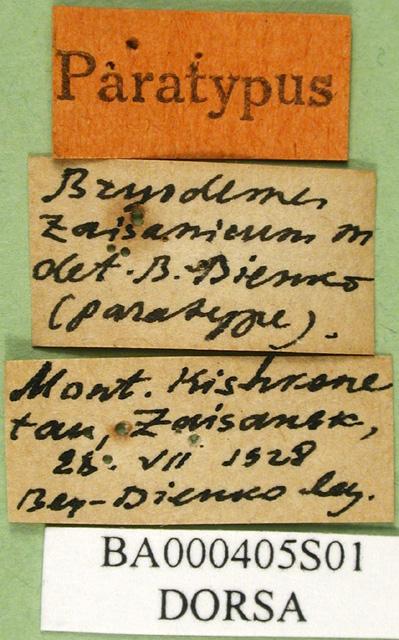 Paratypus
Bryodemes
Zaisanicum m
det. B. Bienko
(paratype).
Mont. Kishkene
tau, Zaisansk,
28. VII 1928
Bey-Bienko leg.
BA000405S01
DORSA